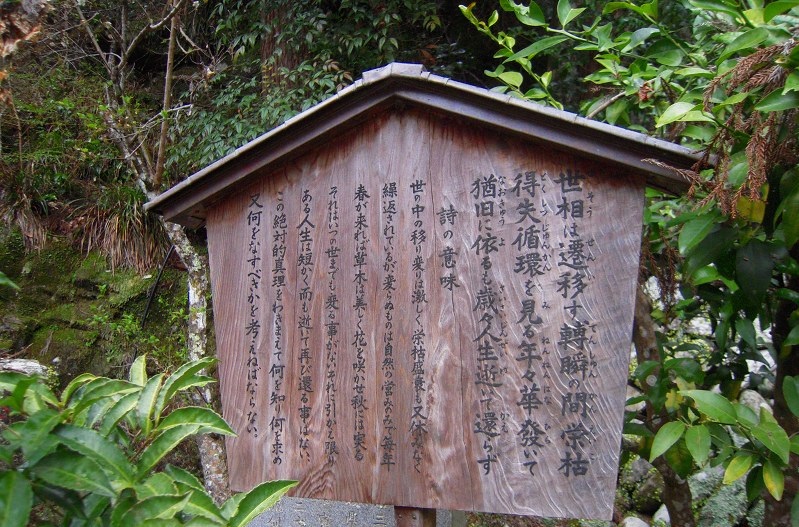 世相は遷移す轉瞬の間栄枯
得失循環を見る年々華發いて
猶旧に依るも歳人生逝て還らず
詩の意味
世の中の移り変りは激しく栄枯盛衰も又休みなく
繰返されているが、変らぬものは自然の営みで毎年
春が来れば草木は美しく花を咲かせ秋には実る
それはいつの世までも変る事がないこれに引かえ限り
ある人生は短かく而も逝いて再び還る事はない、
この絶対的真理をわきまえて何を知り何を求め
又何をなすべきかを考えねばならない、